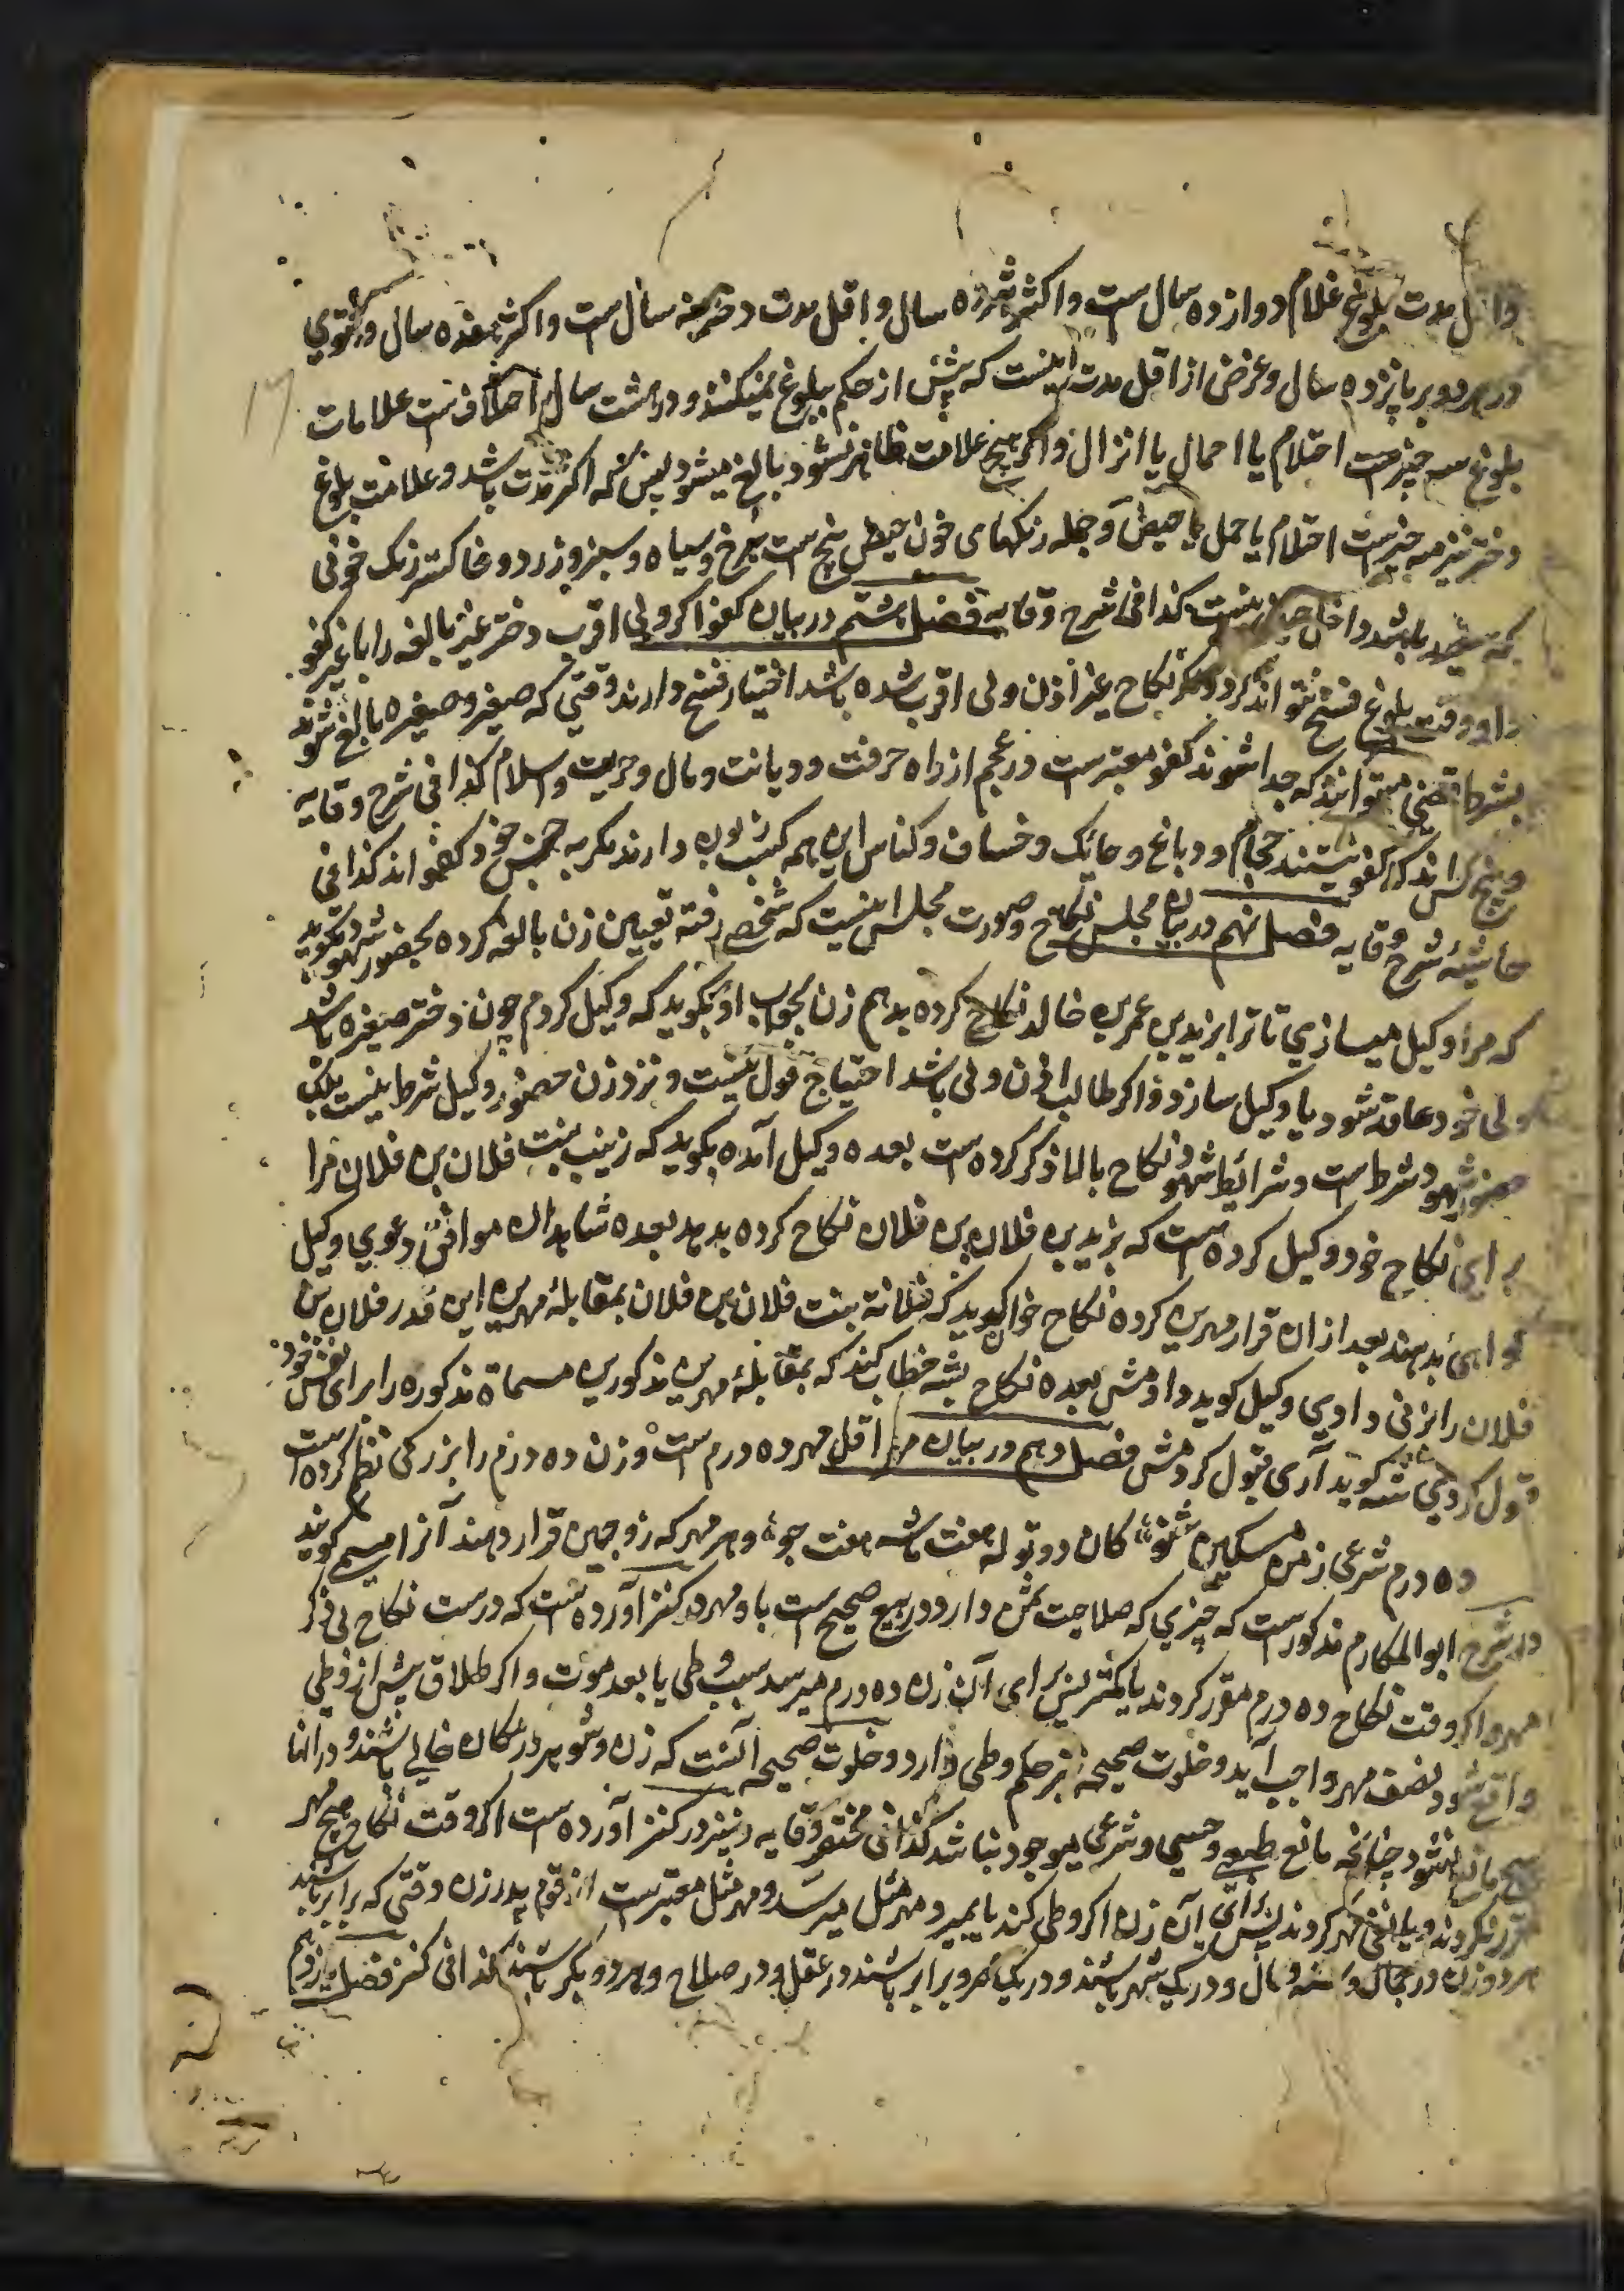 مدت بلوغ غلام دوازده سال ست و اکثر هژده سال و اقل مدت دختر نه سال ست و اکثر هفده سال و فتوی
در هر دو بر پانزده سال و غرض از اقل مدت اینست که پیش از حکم ببلوغ نمیکنند و در هشت سال اختلاف ست علامات
بلوغ سه چیزست احتلام یا احبال یا انزال و اگر هیچ علامت ظاهر نشود بالغ میشود پس که اکثر مدت باشد و علامت بلوغ
دختر نیز سه چیزست احتلام یا حمل یا حیض و جمله رنگهای خون حیض پنج ست سرخ و سیاه و سبز و زرد و خاکستر رنگ خونی
که سفید باشد داخل حیض نیست کذا فی شرح وقایه فصل هشتم در بیان کفو اگر ولی اقرب دختر غیر بالغه را با غیر کفو
داد وقت بلوغ فسخ نتواند کرد و اگر نکاح بغیر اذن ولی اقرب شده باشد اختیار فسخ دارند وقتی که صغیر و صغیره بالغ شوند
بشرط قضی میتوانند که جدا شوند کفو معتبرست در عجم از راه حرفت و دیانت و مال و حریت و اسلام کذا فی شرح وقایه
و پنج کس اند که کفو نیستند حجام و دباغ و حایک و خصاف و کناس این همه کسب زبون دارند مگر به جنس خود کفو اند کذا فی
حاشیهٔ شرح وقایه فصل نهم در بیان مجلس نکاح و صورت مجلس اینست که شخصی رفته تعیین زن بالغه کرده بحضور شهود بگوید
که مرا وکیل میسازی تا ترا بزید بن عمر بن خالد نکاح کرده بدهم زن بجواب او بگوید که وکیل کردم چون دختر صغیره باشد
ولی خود عاقد شود یا وکیل سازد و اگر طالب اذن ولی باشد احتیاج قول نیست و نزد زن حضور وکیل شرط نیست بلکه
حضور شهود شرط است و شرائط شهود نکاح بالا ذکر کرده ست بعده وکیل آمده بگوید که زینب بنت فلان بن فلان مرا
برای نکاح خود وکیل کرده ست که بزید بن فلان بن فلان نکاح کرده بدهد بعده شاهدان موافق دعوی وکیل
گواهی بدهند بعد ازان قرار مهر بن کرده نکاح خوان گوید که فلانه بنت فلان بن فلان بمقابلهٔ مهر بن این قدر فلان بن
فلان را بزنی دادی وکیل گوید دادمش بعده نکاح بشه خطاب کند که بمقابلهٔ مهر بن مذکورین مسماة مذکوره را برای نفس خود
قبول کردی شه گوید آری قبول کردمش فصل دهم در بیان مهر اقل مهر ده درم ست وزن ده درم را بزرگی نظم کرده است
ده درم شرعی ز من مسکین شنو کان دو توله هفت ماشه هفت جو و هر مهر که زوجین قرار دهند آنرا مسمی گویند
در شرح ابوالمکارم مذکورست که چیزی که صلاحیت ثمن دارد در بیع صحیح ست با و مهر در کنز آورده ست که درست نکاح بی ذکر
مهر و اگر وقت نکاح ده درم مقرر کردند یا کمتر پس برای آن زن ده درم میرسد بسبب وطی یا بعد موت و اگر طلاق پیش از وطی
واقع شود نصف مهر واجب آید و خلوت صحیحه نیز حکم وطی دارد و خلوت صحیحه آنست که زن و شوهر در مکان خالی باشند و در آنجا
هیچ مانع نشود چنانچه مانع طبعی و حسی و شرعی موجود نباشد کذا فی مختصر وقایه و نیز در کنز آورده ست اگر وقت نکاح هیچ مهر
مقرر نکردند و یا نفی مهر کردند پس برای آن زن اگر وطی کند یا بمیرد مهر مثل میرسد و مهر مثل معتبرست از قوم پدر زن وقتی که برابر باشند
هر دو زن در جمال و سنه و مال و در یک شهر باشند و در یک عصر و برابر باشند در عقل و در صلاح و هر دو بکر باشند کذا فی کنز فصل یازدهم